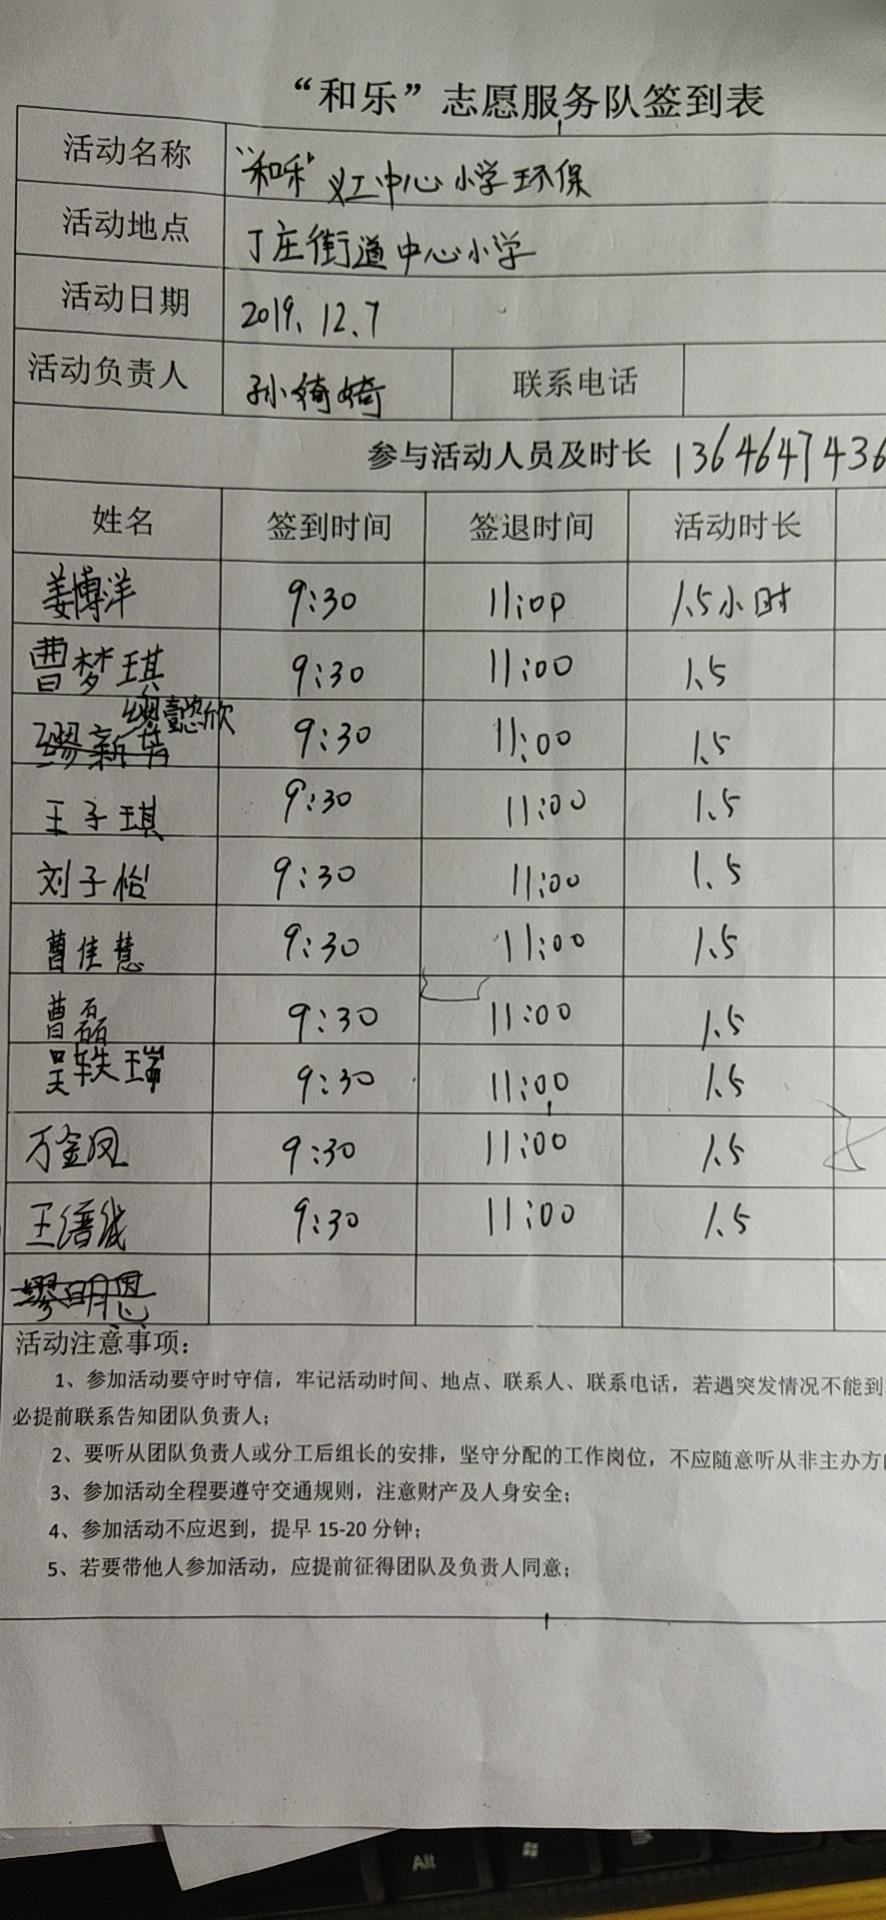 “和乐”志愿服务队签到表
活动名称 “和乐”义工中心小学环保
活动地点 丁庄街道中心小学
活动日期 2019.12.7
活动负责人 孙绮婍 联系电话
参与活动人员及时长 1364647436
姓名 签到时间 签退时间 活动时长
姜博洋 9:30 11:00 1.5小时
曹梦琪 9:30 11:00 1.5
缪懿欣
9:30 11:00 1.5
王子琪 9:30 11:00 1.5
刘子怡 9:30 11:00 1.5
曹佳慧 9:30 11:00 1.5
曹磊 9:30 11:00 1.5
吴轶瑞 9:30 11:00 1.5
万金凤 9:30 11:00 1.5
王 9:30 11:00 1.5
缪明恩
活动注意事项：
1、参加活动要守时守信，牢记活动时间、地点、联系人、联系电话，若遇突发情况不能到
必提前联系告知团队负责人；
2、要听从团队负责人或分工后组长的安排，坚守分配的工作岗位，不应随意听从非主办方
3、参加活动全程要遵守交通规则，注意财产及人身安全；
4、参加活动不应迟到，提早 15-20 分钟；
5、若要带他人参加活动，应提前征得团队及负责人同意；
Alt